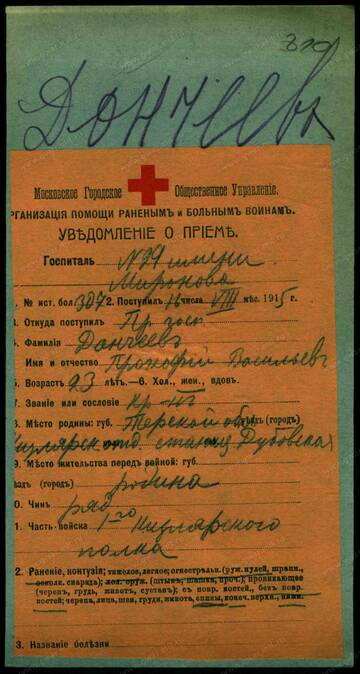 Дончеевъ
Московское Городское Общественное Управленіе.
ОРГАНИЗАЦІЯ ПОМОЩИ РАНЕНЫМЪ и БОЛЬНЫМЪ ВОИНАМЪ.
УВѢДОМЛЕНІЕ О ПРІЕМѢ.
Госпиталь №99 имени
Миронова
№ ист. бол. 307 2. Поступилъ 16 числа VIII мѣс. 1915 г.
Откуда поступилъ Пр госп
Фамилія Дончеевъ
Имя и отчество Прокофій Васильев
Возрастъ 23 лѣтъ.—6. Хол., жен., вдовъ.
7. Званіе или сословіе кр-нъ
8. Мѣсто родины: губ. Терской обл уѣздъ (городъ)
Кизлярск отд. станиц Дубовская
9. Мѣсто жительства передъ войной: губ.
уѣздъ (городъ) родина
0. Чинъ ряд
1. Часть войска 1го Кизлярского
полка
2. Раненіе, контузія; тяжелое, легкое; огнестрѣльн. (руж. пулей, шрапн.,
осколк. снаряда); хол. оруж. (штыкъ, шашка, проч.); проникающее
(черепъ, грудь, животъ, суставъ); съ повр. костей, безъ повр.
костей; черепа, лица, шеи, груди, живота, спины, конеч. верхн., нижн.
3. Названіе болѣзни